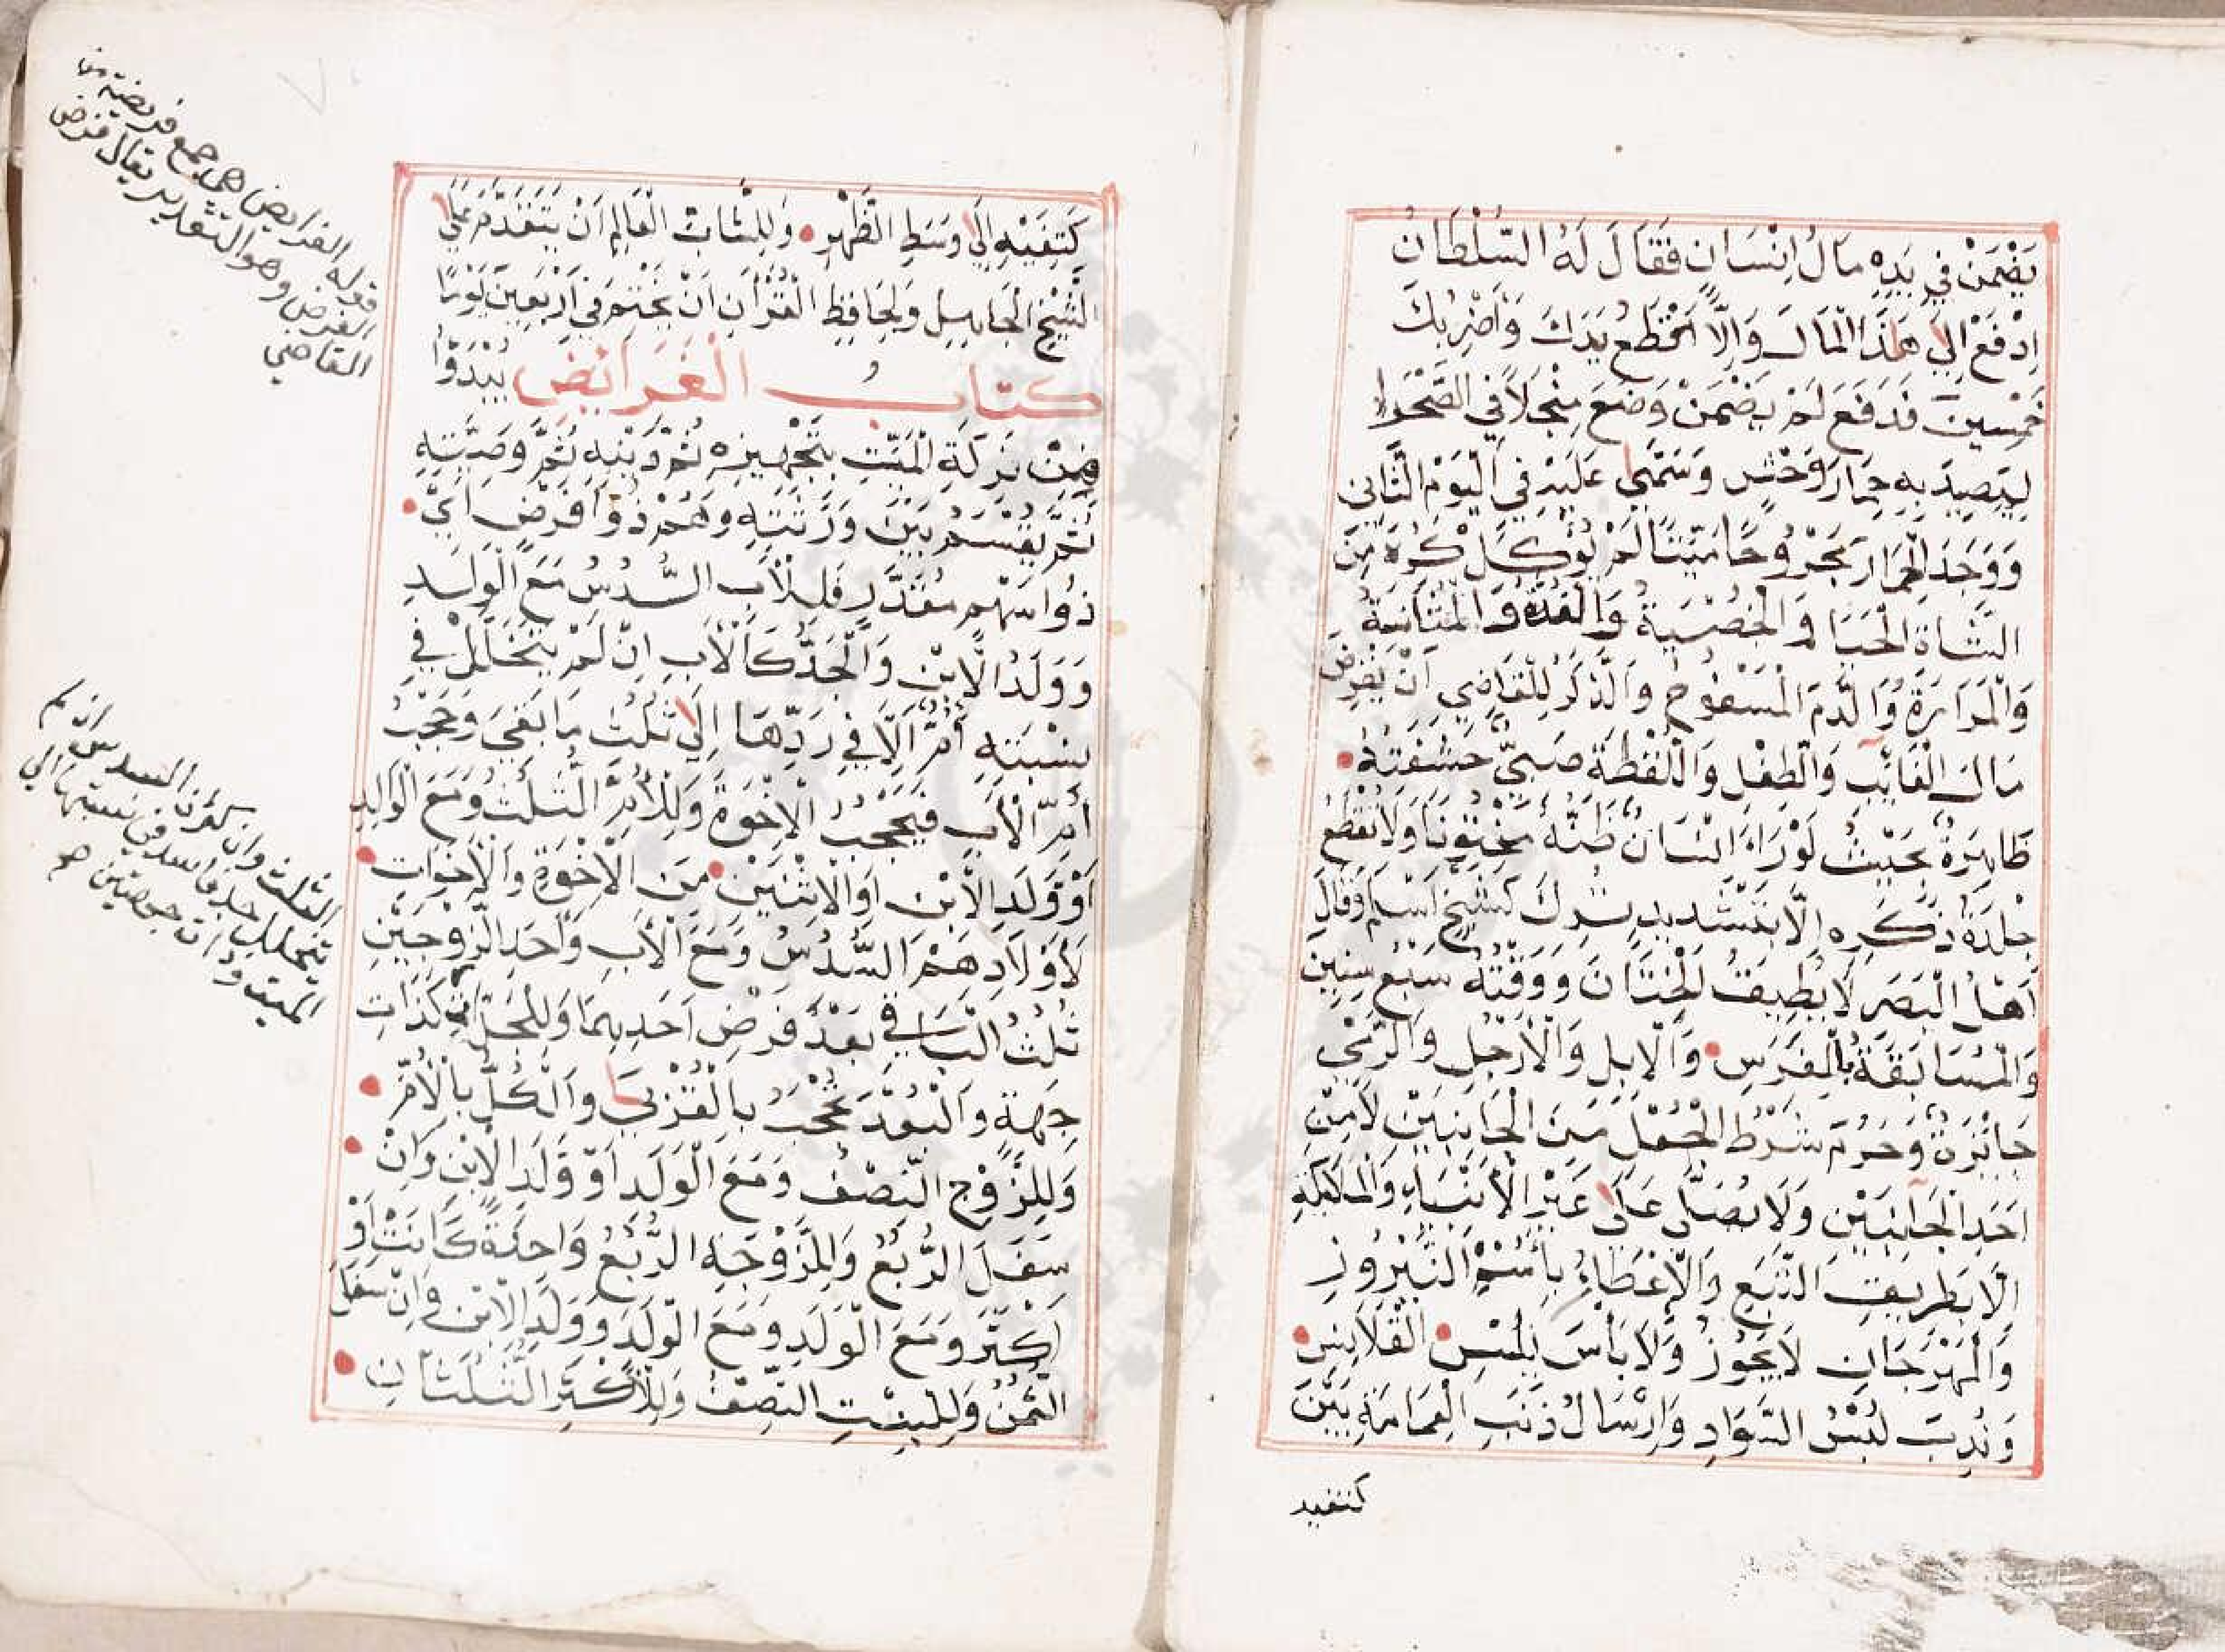 يَضْمَنْ فِي يَدِهِ مَالُ اِنْسَانٍ فَقَالَ لَهُ السُّلْطَانُ
اِدْفَعْ اِلَىَّ هَذَا الْمَالَ وَاِلَّا اَقْطَعُ يَدَكَ وَاَضْرِبُكَ
خَمْسِينَ فَدَفَعَ لَمْ يَضْمَنْ وَضَعَ مِنْجَلاً فِي الصَّحْرَاءِ
لِيَصِيدَ بِهِ حِمَارَ وَحْشٍ وَسَمَّى عَلَيْهِ فِي الْيَوْمِ الثَّانِي
وَوَجَدَ الْحِمَارَ مَجْرُوحًا مَيِّتًا لَمْ يُؤْكَلْ كُرِهَ مِنَ
الشَّاةِ الْحَيَا وَالْخُصْيَةُ وَالْغُدَّةُ وَالْمَثَانَةُ
وَالْمَرَارَةُ وَالدَّمُ الْمَسْفُوحُ وَالذَّكَرُ لِلْقَاضِي اَنْ يُقْرِضَ
مَالَ الْغَائِبِ وَالطِّفْلِ وَاللُّقَطَةَ صَبِيٌّ حَشَفَتُهُ
ظَاهِرَةٌ بِحَيْثُ لَوْ رَاَهُ اِنْسَانٌ ظَنَّهُ مَخْتُونًا وَلَا تُقْطَعُ
جِلْدَةُ ذَكَرِهِ اِلَّا بِتَشْدِيدٍ تُرِكَ كَشَيْخٍ اَسْلَمَ وَقَالَ
اَهْلُ الْبَصَرِ لَا يُطِيقُ الْخِتَانَ وَوَقْتُهُ سَبْعُ سِنِينَ
وَالْمُسَابَقَةُ بِالْفَرَسِ وَالْاِبِلِ وَالْاَرْجُلِ وَالرَّمْيِ
جَائِزَةٌ وَحَرُمَ شَرْطُ الْجُعْلِ مِنَ الْجَانِبَيْنِ لَا مِنْ
اَحَدِ الْجَانِبَيْنِ وَلَا يُصَلَّى عَلَى غَيْرِ الْاَنْبِيَاءِ وَالْمَلَائِكَةِ
اِلَّا بِطَرِيقِ التَّبَعِ وَالْاِعْطَاءُ بِاسْمِ النَّيْرُوزِ
وَالْمِهْرَجَانِ لَا يَجُوزُ وَلَا بَأْسَ بِلُبْسِ الْقَلَانِسِ
وَنُدِبَ لُبْسُ السَّوَادِ وَاِرْسَالُ ذَنَبِ الْعِمَامَةِ بَيْنَ
كتفيه
كَتِفَيْهِ اِلَى وَسَطِ الظَّهْرِ وَلِلشَّابِّ الْعَالِمِ اَنْ يَتَقَدَّمَ عَلَى
الشَّيْخِ الْجَاهِلِ وَلِحَافِظِ الْقُرْاٰنِ اَنْ يَخْتِمَ فِي اَرْبَعِينَ يَوْمًا
كتَابُ الْفَرَائِضِ يُبْدَؤُا
مِنْ تَرِكَةِ الْمَيِّتِ بِتَجْهِيزِهِ ثُمَّ دَيْنِهِ ثُمَّ وَصِيَّتِهِ
ثُمَّ يُقْسَمُ بَيْنَ وَرَثَتِهِ وَهُمْ ذُوا فَرْضٍ اَيْ
ذُوا سَهْمٍ مُقَدَّرٍ فَلِلْاَبِ السُّدُسُ مَعَ الْوَلَدِ
وَوَلَدُ الْاِبْنِ وَالْجَدُّ كَالْاَبِ اِنْ لَمْ يَتَخَلَّلْ فِي
نِسْبَتِهِ اُمٌّ اِلَّا فِي رَدِّهَا اِلَى ثُلُثِ مَا بَقِيَ وَحَجْبُ
اُمِّ الْاَبِ فَيَحْجُبُ الْاِخْوَةَ وَلِلْاُمِّ الثُّلُثُ وَمَعَ الْوَلَدِ
اَوْ وَلَدِ الْاِبْنِ اَوِ الْاِثْنَيْنِ مِنَ الْاِخْوَةِ وَالْاَخَوَاتِ
لَا اَوْلَادِهِمْ السُّدُسُ وَمَعَ الْاَبِ وَاَحَدِ الزَّوْجَيْنِ
ثُلُثُ الْبَاقِي بَعْدَ فَرْضِ اَحَدِهِمَا وَلِلْجَدَّةِ كَذَاتِ
جِهَةٍ وَالْبُعْدَى تُحْجَبُ بِالْقُرْبَى وَالْكُلُّ بِالْاُمِّ
وَلِلزَّوْجِ النِّصْفُ وَمَعَ الْوَلَدِ اَوْ وَلَدِ الْاِبْنِ وَاِنْ
سَفَلَ الرُّبُعُ وَلِلزَّوْجَةِ الرُّبُعُ وَاحِدَةً كَانَتْ اَوْ
اَكْثَرَ وَمَعَ الْوَلَدِ وَمَعَ الْوَلَدِ وَوَلَدِ الْاِبْنِ وَاِنْ سَفَلَ
الثُّمُنُ وَلِلْبِنْتِ النِّصْفُ وَلِلْاَكْثَرِ الثُّلُثَانِ
قوله الفرايض هي جمع فريضة من
الفرض وهو التقدير يقال فرض
القاضي